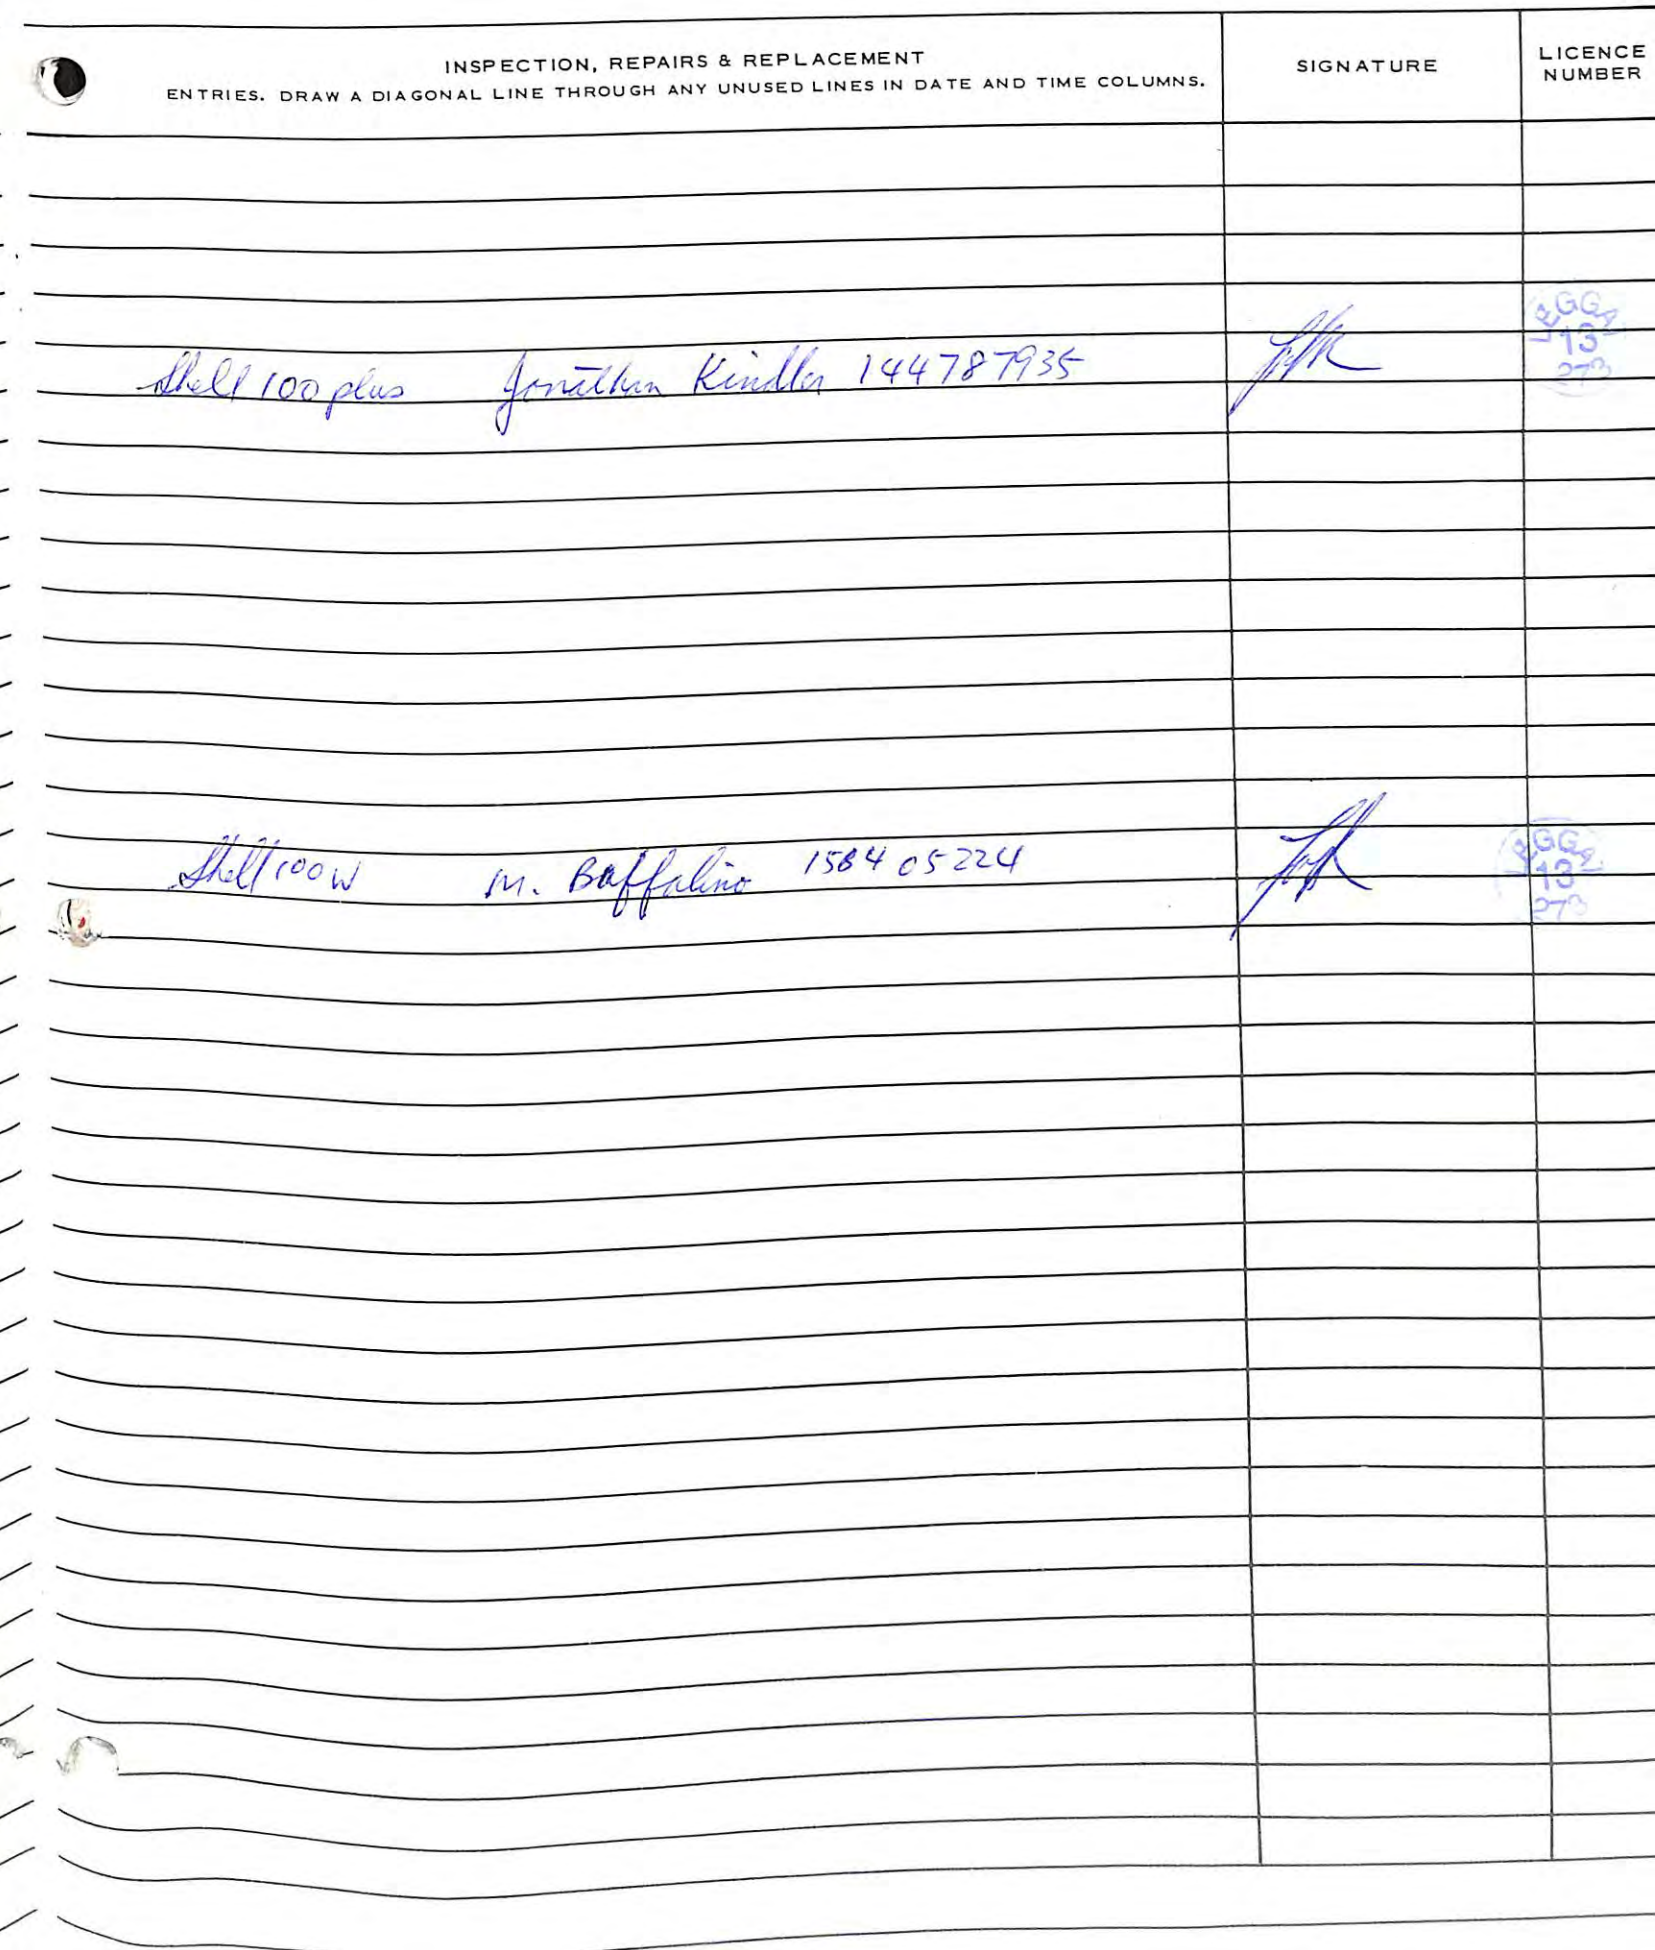 INSPECTION, REPAIRS & REPLACEMENT
ENTRIES. DRAW A DIAGONAL LINE THROUGH ANY UNUSED LINES IN DATE AND TIME COLUMNS.
SIGNATURE
LICENCE
NUMBER
Shell 100 plus Jonathan Kindler 144787935
13
273
Shell 100W M. Buffalino 158405224
13
273